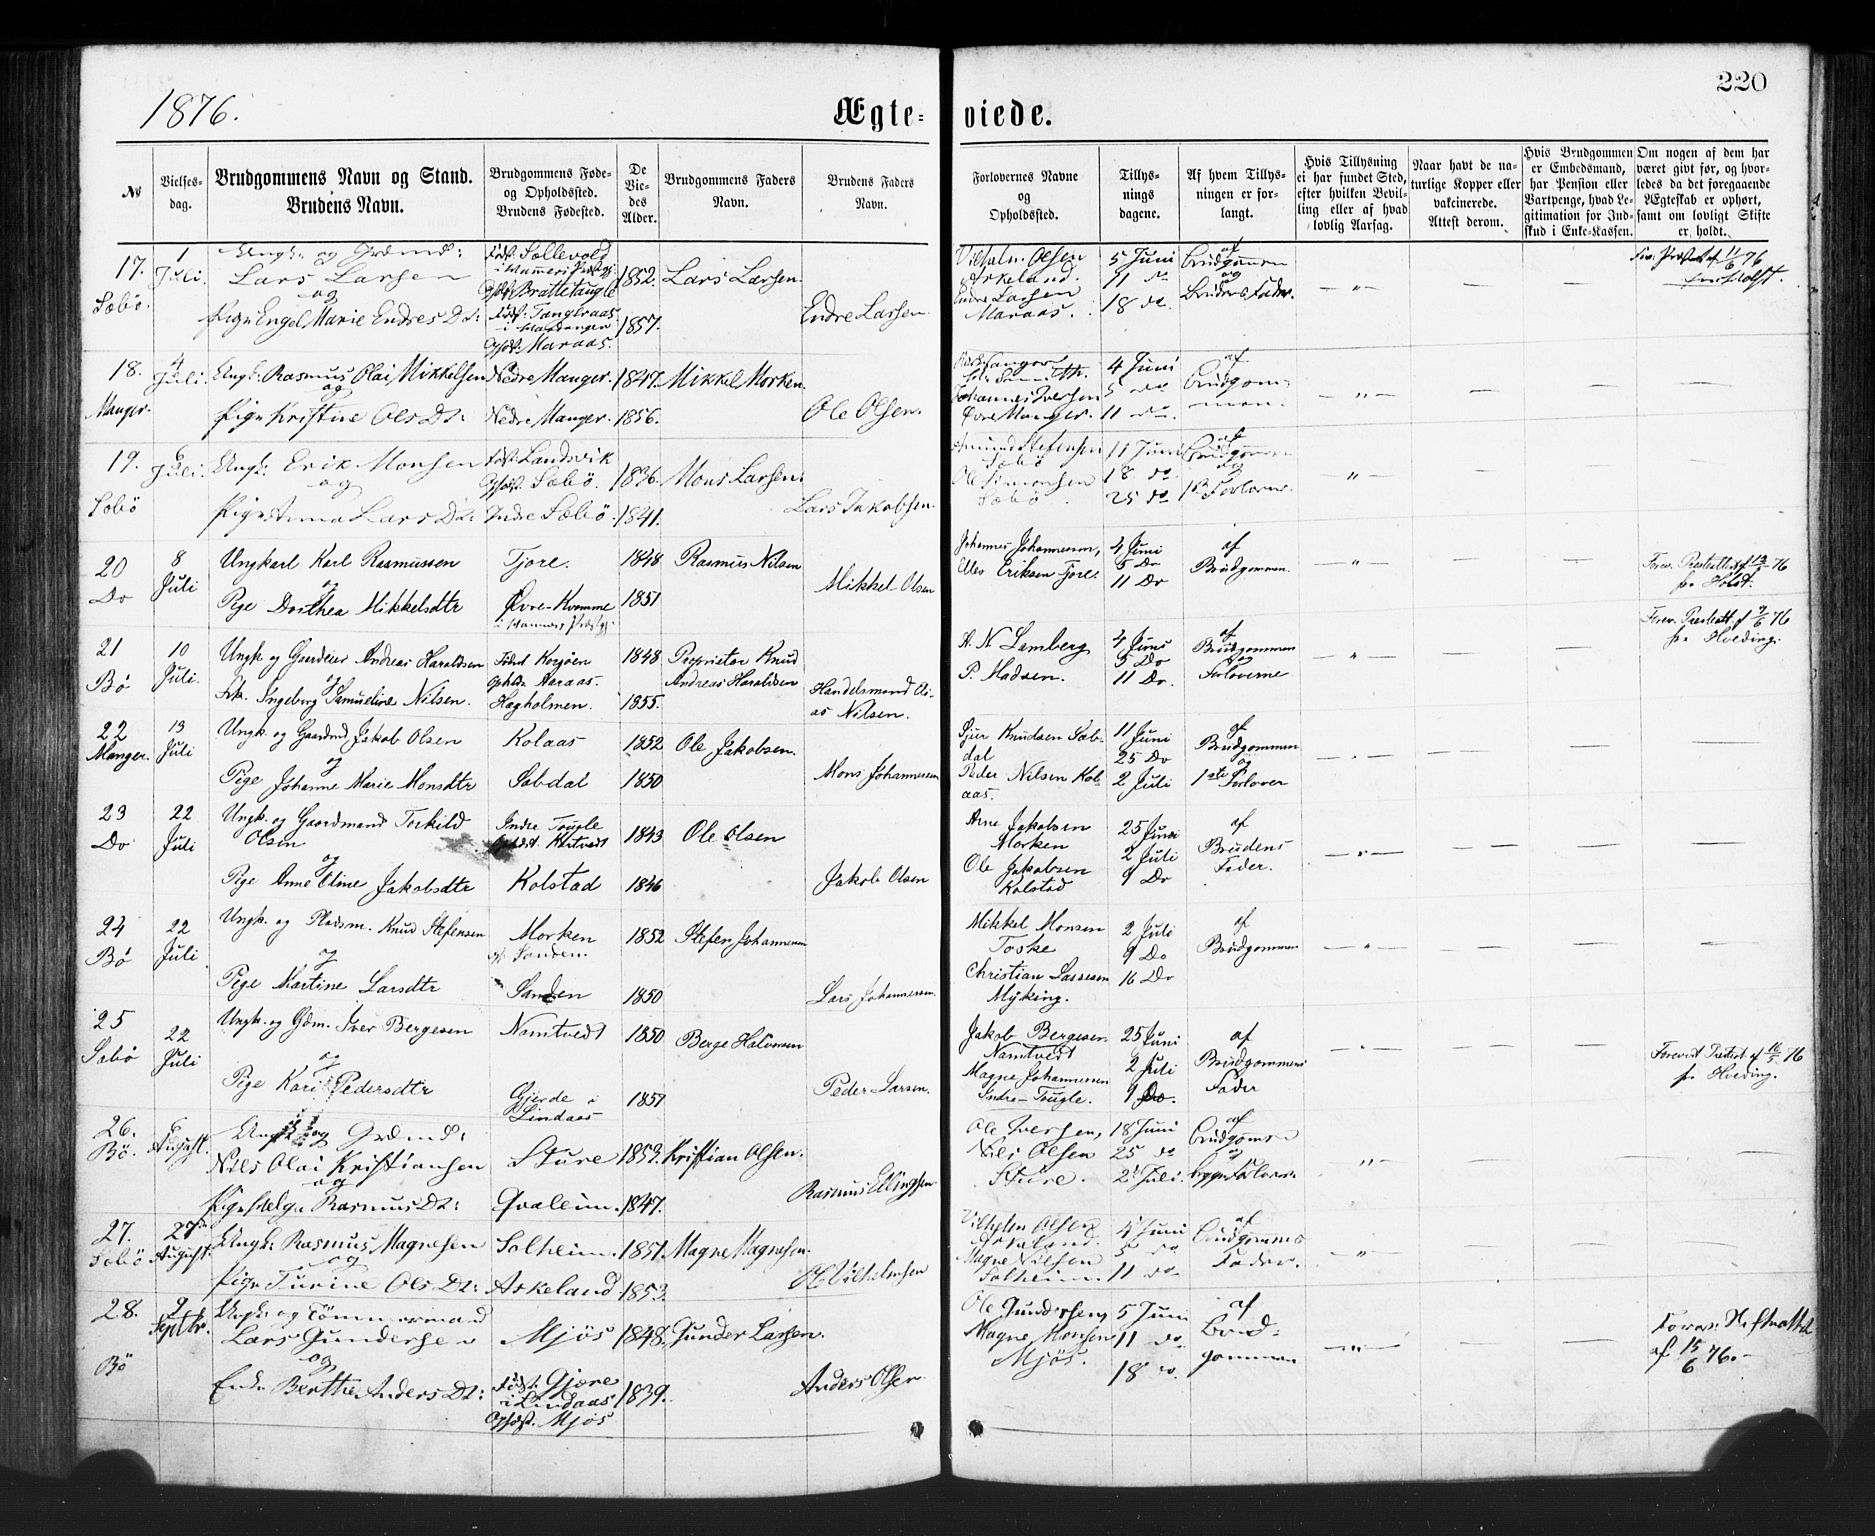 220
1876.
Ægteviede.
No
Vielsesdag.
Brudgommens Navn og Stand.
Brudens Navn.
Brudgommens Føde-
og Opholdssted.
Brudens Fødested.
De
Vie-
des
Alder.
Brudgommens Faders
Navn.
Brudens Faders
Navn.
Forlovernes Navne
og
Opholdssted.
Tillys-
nings
dagene.
Af hvem Tillys-
ningen er for-
langt.
Hvis Tillysning
ei har fundet Sted,
efter hvilken Bevil-
ling eller af hvad
lovlig Aarsag.
Naar havt de na-
turlige Kopper eller
vakcinerede.
Attest derom.
Hvis Brudgommen
er Embedsmand,
har Pension eller
Vartpenge, hvad Le-
gitimation for Ind-
skud i Enke-Kassen.
Om nogen af dem har
været givt før, og hvor-
ledes da det foregaaende
Ægteskab er ophørt,
samt om lovligt Skifte
er holdt.
17. Sæbø. 1 Juli.
Ungk: og Grdmd:
Lars Larsen
og
Pige Engel Marie Endres Dt:
Brattetangle
Maraas.
1852. 1857.
Lars Larsen.
Endre Larsen.
Vilhelm Olsen
Askeland.
Endre Larsen
Maraas.
5 Juni
11 do
18 do.
af
Brudgommen
og
Brudens Fader.
18. Manger. 4 Juli.
Ungk: Rasmus Olai Mikkelsen
og
Pige Kristine Ols Dt:
Nedre Manger.
Nedre Manger.
1847. 1856.
Mikkel Morken.
Ole Olsen.
Johannes Iversen
Øvre Manger.
4 Juni
5 do
11 do.
af
Brudgom-
men.
19. Sæbö 6 Juli.
Ungk: Erik Monsen
og
Pige Anna Lars Dt:
Fødst. Landsvik
Opholdst. Sæbö.
Indre Sæbö.
1836. 1841.
Mons Larsen.
Lars Jakobsen.
Amund Stefensen
Sæbö
Ole Simonsen
Sæbö
11 Juni
18 do
25 do
af
Brudgommen
og
1ste Forlover.
20 Do 8 Juli
Ungkarl Karl Rasmussen
og
Pige Dorthea Mikkelsdtr
Tjore.
Øvre-Kvamme
i Hammers Præstgj.
1848 1851
Rasmus Nilsen
Mikkel Olsen
Johannes Johannessen,
Elles Eriksen Tjore.
4 Juni
5 Do
11 Do
af
Brudgommen.
Holst.
21 Bø 10 Juli.
Ungk. og Gaardeier Andreas Haraldsen
og
Frk. Ingeborg Samueline Nilsen.
Hagholmen.
1848 1855.
Proprietær Knud
Andreas Haraldsen
Handelsmand
Nilsen.
A. N. Lamberg
P. Madsen.
4 Juni
5 Do
11 Do.
af
Brudgommen
og
Forloverne
Hveding.
22 Manger. 13 Juli
Ungk. og Gaardmd. Jakob Olsen
og
Pige Johanne Marie Monsdtr
Kolaas
Sæbdal
1852 1850
Ole Jakobsen.
Mons Johannessen
Sjur Knudsen Sæb-
dal
Peder Nilsen Kol-
aas.
11 Juni
25 Do
2 Juli
af
Brudgommen
og
1ste Forlover
23 Do 22 Juli
Ungk. og Gaardmand Torkild
Olsen
og
Pige Anne Oline Jakobsdtr
Indre Tougle
Kolstad
1843 1846
Ole Olsen
Jakob Olsen
Arne Jakobsen
Morken
Ole Jakobsen
Kolstad
25 Juni
2 Juli
9 Do
af
Brudens
Fader.
24 Bø 22 Juli
Ungk. og Pladsm. Knud Stefensen
og
Pige Martine Larsdtr
Morken
Sanden.
Sanden
1852 1850
Stefen Johannesen
Lars Johannessen.
Mikkel Monsen
Toske
Christian Lassesen
Myking.
2 Juli
9 Do
16 Do
af
Brudgommen
25 Sæbø 22 Juli
Ungk. og Gdm. Iver Bergesen
og
Pige Kari Pedersdtr
Namtvedt
Gjerde i
Lindaas
1850 1851
Berge Halvorsen
Peder Larsen.
Jakob Bergesen
Namtvedt
Magne Johannessen
Indre-Tougle.
25 Juni
2 Juli
9 Do.
af
Brudgommens
Fader
Hveding.
26. Bø. 6 August.
Ungk: og Grdmd:
Nils Olai Kristiansen
og
Pige Helga Rasmus Dt:
Sture
Qvalem.
1853. 1847.
Kristian Olsen.
Rasmus Ellingsen
Ole Iversen,
Nils Olsen
Sture.
18 Juni
25 do
2 Juli.
af
Brudgommen
og
begge Forlover.
27. Sæbö 27 August.
Ungk: Rasmus Magnesen
og
Pige Turine Ols Dt:
Solheim.
Askeland.
1851. 1853.
Magne Magnesen.
Ole Vilhelmsen
Vilhelm Olsen
Askeland.
Magne Nilsen
Solheim.
4 Juni
5 do
11 do
af
Brudgommens
Fader.
28. Bö 2 Septbr.
Ungk: og Tömmermand
Lars Gundersen
og
Enke Berthe Anders Dt:
Mjös
Fødst. Gjære
i Lindaas
Opholdst. Mjös
1848. 1839.
Gunder Larsen.
Anders Olsen.
Ole Gundersen,
Magne Monsen
Mjös.
5 Juni
11 do
18 do.
af
Brud-
gommen
af 15/6 76.